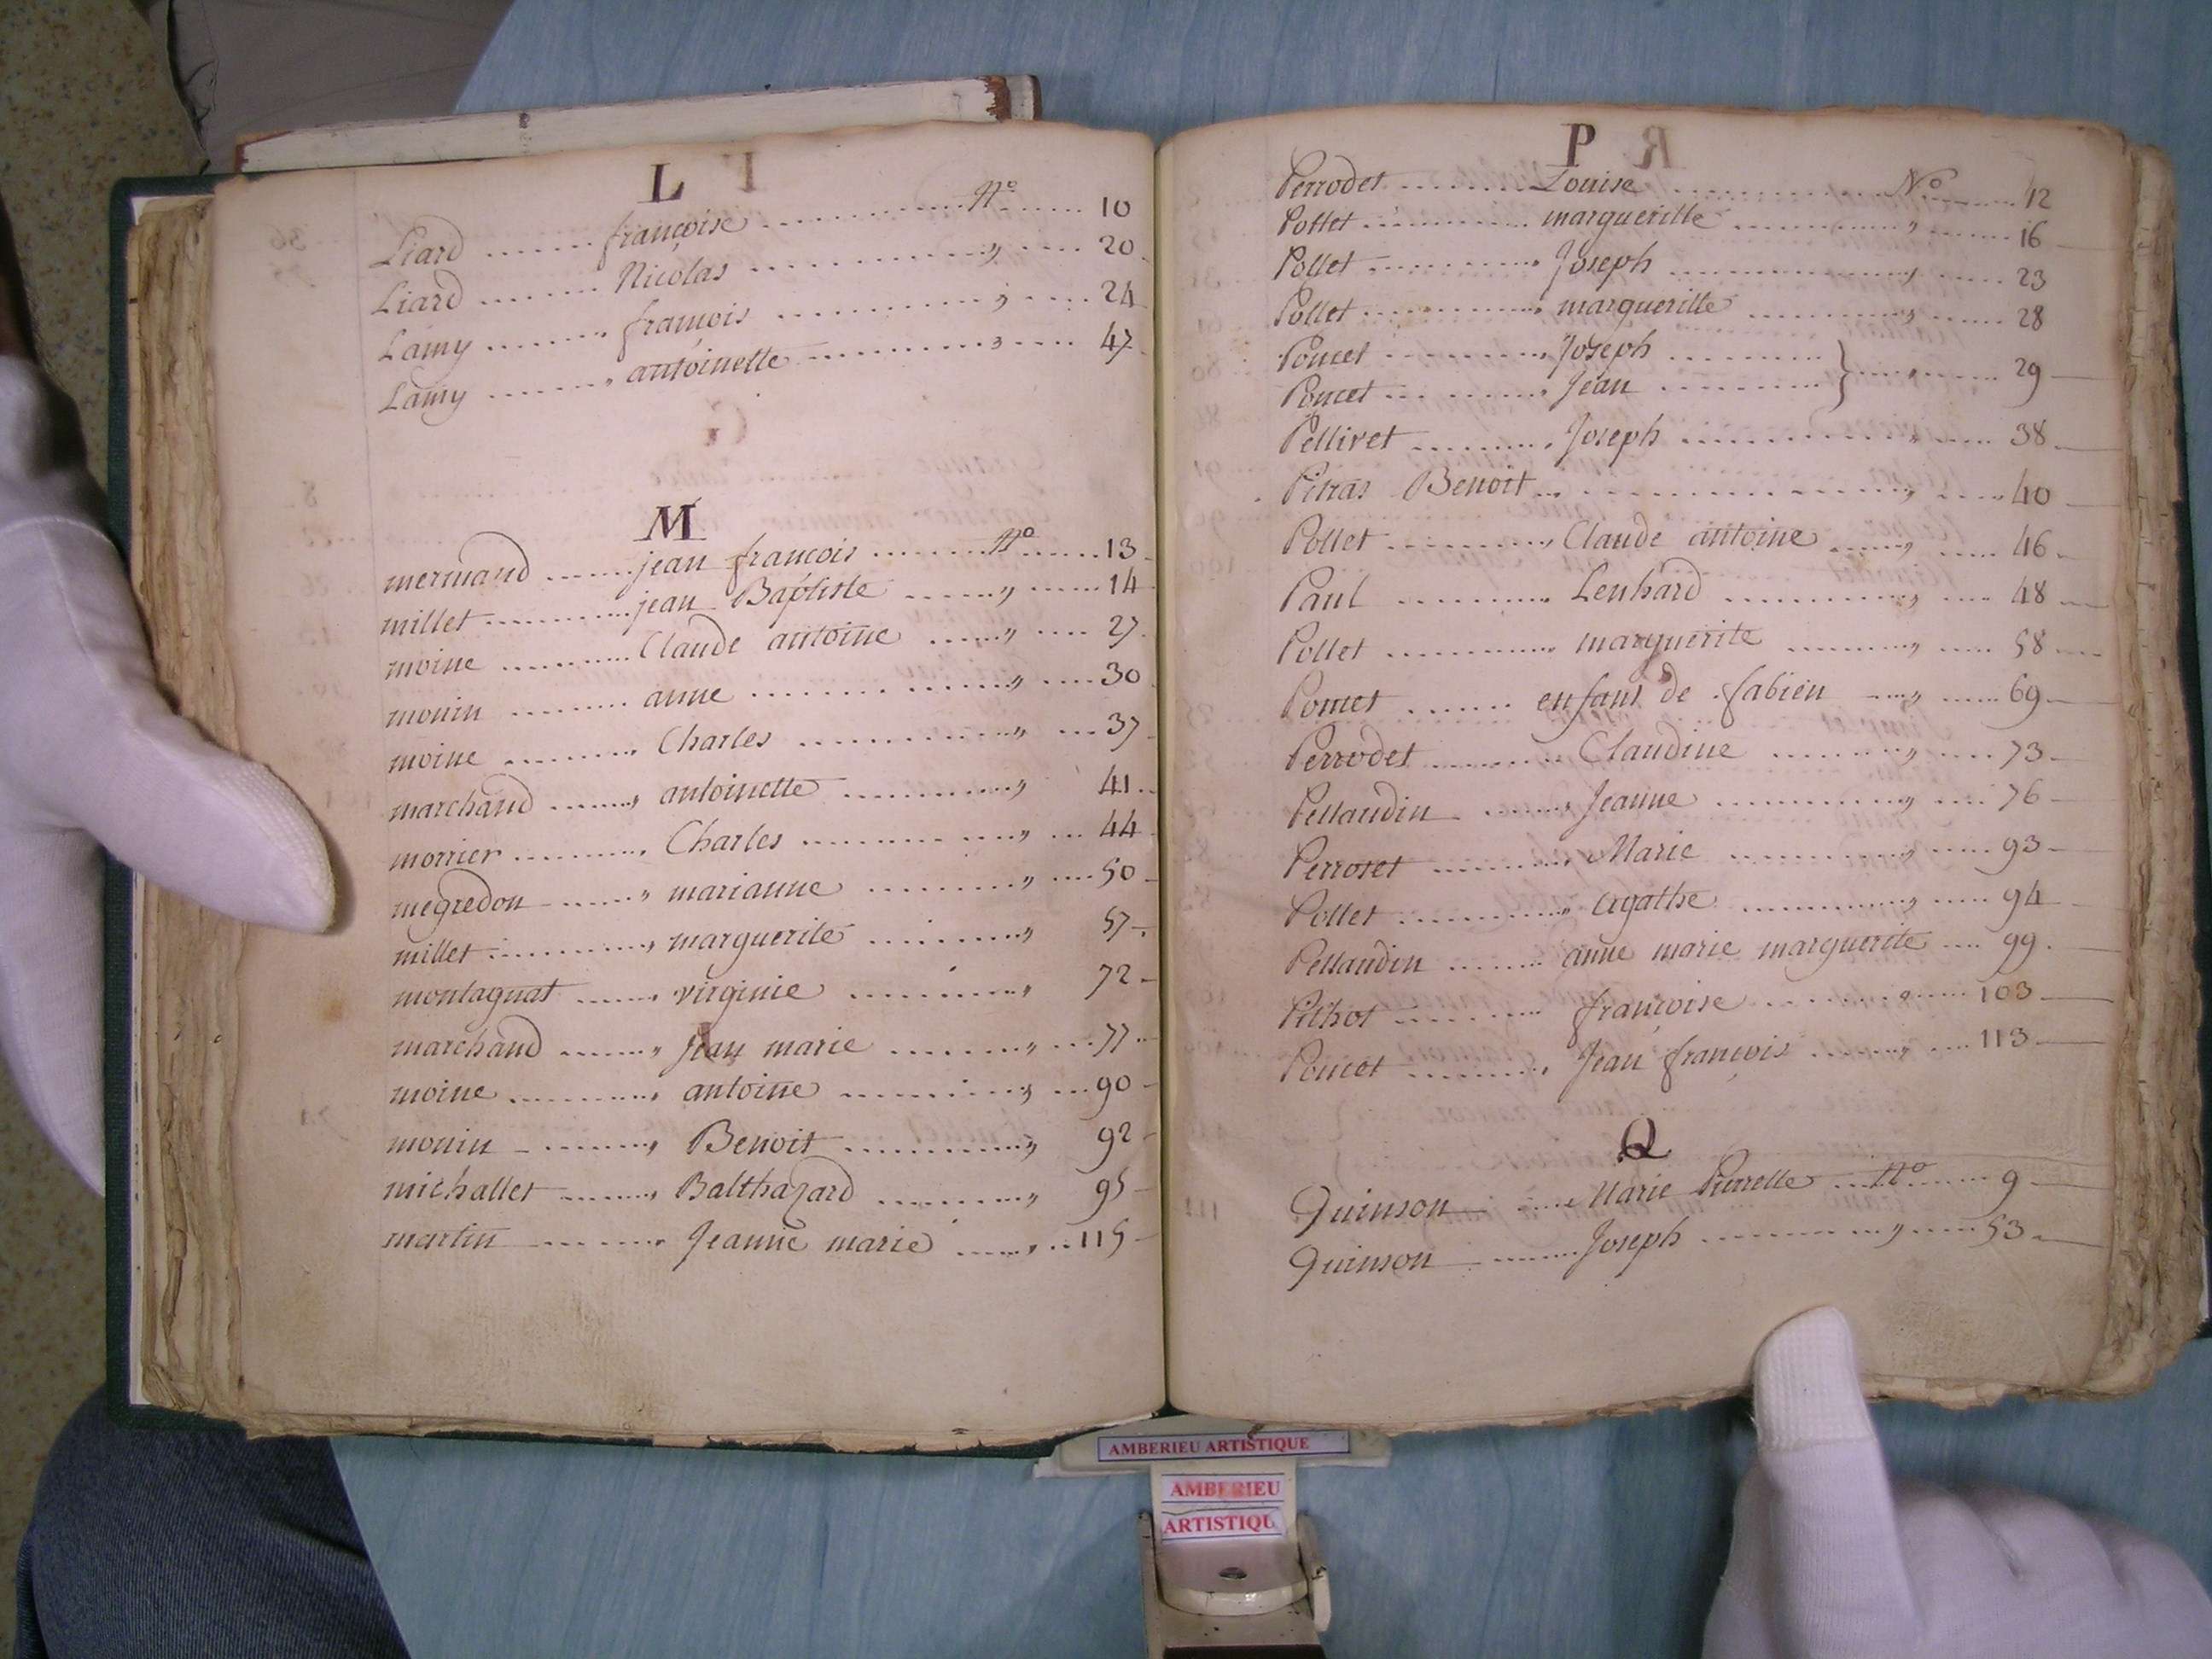 L
Liard ....... françoise ............... N° ...... 10
Liard ........ Nicolas ............... " .... 20
Lamy ........ francois ............. " .... 24
Lamy ....... antoinette ........... " .... 47
M
mermand ...... jean francois ....... N° ...... 13
millet .......... jean Baptiste ...... " ...... 14
moine .......... Claude antoine ..... " .... 27
monin ......... anne ............... " .... 30
moine ......... Charles ............. " ... 37
marchand ....... antoinette .......... " 41
morrier .......... Charles ............ " ... 44
megredon ...... marianne ......... " .... 50
millet .......... marguerite ......... " 57
montagnat ...... virginie .......... " 72
marchand ...... jean marie ........ " ... 77
moine .......... antoine ......... " ... 90
monin ........ Benoit ........... " 92
michallet ....... Balthazard ........ " 95
martin ........ Jeanne marie ..... " .. 115
P
Perrodet ........ Louise ............ N° ...... 12
Pollet ............ marguerille ......... " ...... 16
Pollet ............ Joseph ............ " ..... 23
Pollet ............ marguerille ......... " ...... 28
Poncet .......... Joseph .......... } ..... " ..... 29
Poncet .......... Jean ..........
Pellivet ......... Joseph ............ " .... 38
Pitras Benoit ............... " .... 40
Pollet .......... Claude antoine ..... " .... 46
Paul .......... Lenhard .......... " .... 48
Pollet .......... marguerite ....... " .... 58
Poncet ...... enfans de fabien .... " ..... 69
Perrodet ......... Claudine ......... " .... 73
Pellaudin ...... Jeanne ........... " .... 76
Perroset ......... Marie ........... " .... 93
Pollet .......... agathe .......... " .... 94
Pellaudin ....... anne marie marguerite .... 99
Pithot .......... françoise ......... " ..... 103
Poncet ......... Jean françois ...... " .... 113
Q
Quinson .... Marie Pierrette ... N° ...... 9
Quinson ....... Joseph .......... " .... 53
AMBERIEU ARTISTIQUE
AMBERIEU
ARTISTIQU